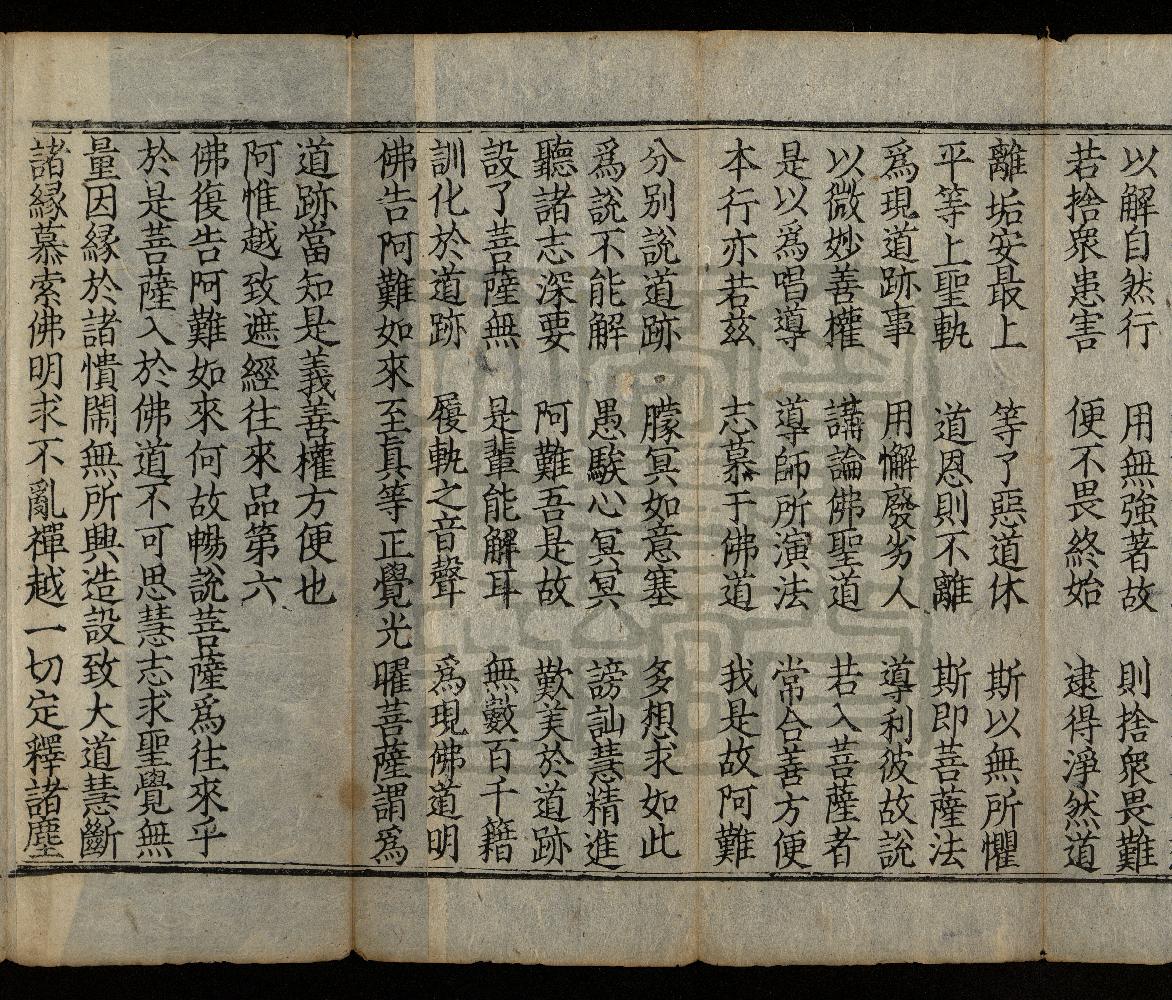 以解自然行　用無強著故　則捨衆畏難
若捨衆患害　便不畏終始　逮得淨然道
離垢安最上　等了惡道休　斯以無所懼
平等上聖軌　道恩則不離　斯即菩薩法
爲現道跡事　用懈廢劣人　導利彼故說
以微妙善權　講論佛聖道　若入菩薩者
是以爲唱導　導師所演法　常合善方便
本行亦若兹　志慕于佛道　我是故阿難
分別說道跡　朦冥如意塞　多想求如此
爲說不能解　愚騃心冥冥　謗訕慧精進
聽諸志深要　阿難吾是故　歎美於道跡
設了菩薩無　是輩能解耳　無數百千籍
訓化於道跡　履軌之音聲　爲現佛道明
佛告阿難如來至真等正覺光曜菩薩謂爲
道跡當知是義善權方便也
阿惟越致遮經往來品第六
佛復告阿難如來何故暢說菩薩爲往來乎
於是菩薩入於佛道不可思慧志求聖覺無
量因緣於諸憒閙無所興造設致大道慧斷
諸緣慕索佛明求不亂禪越一切定釋諸塵